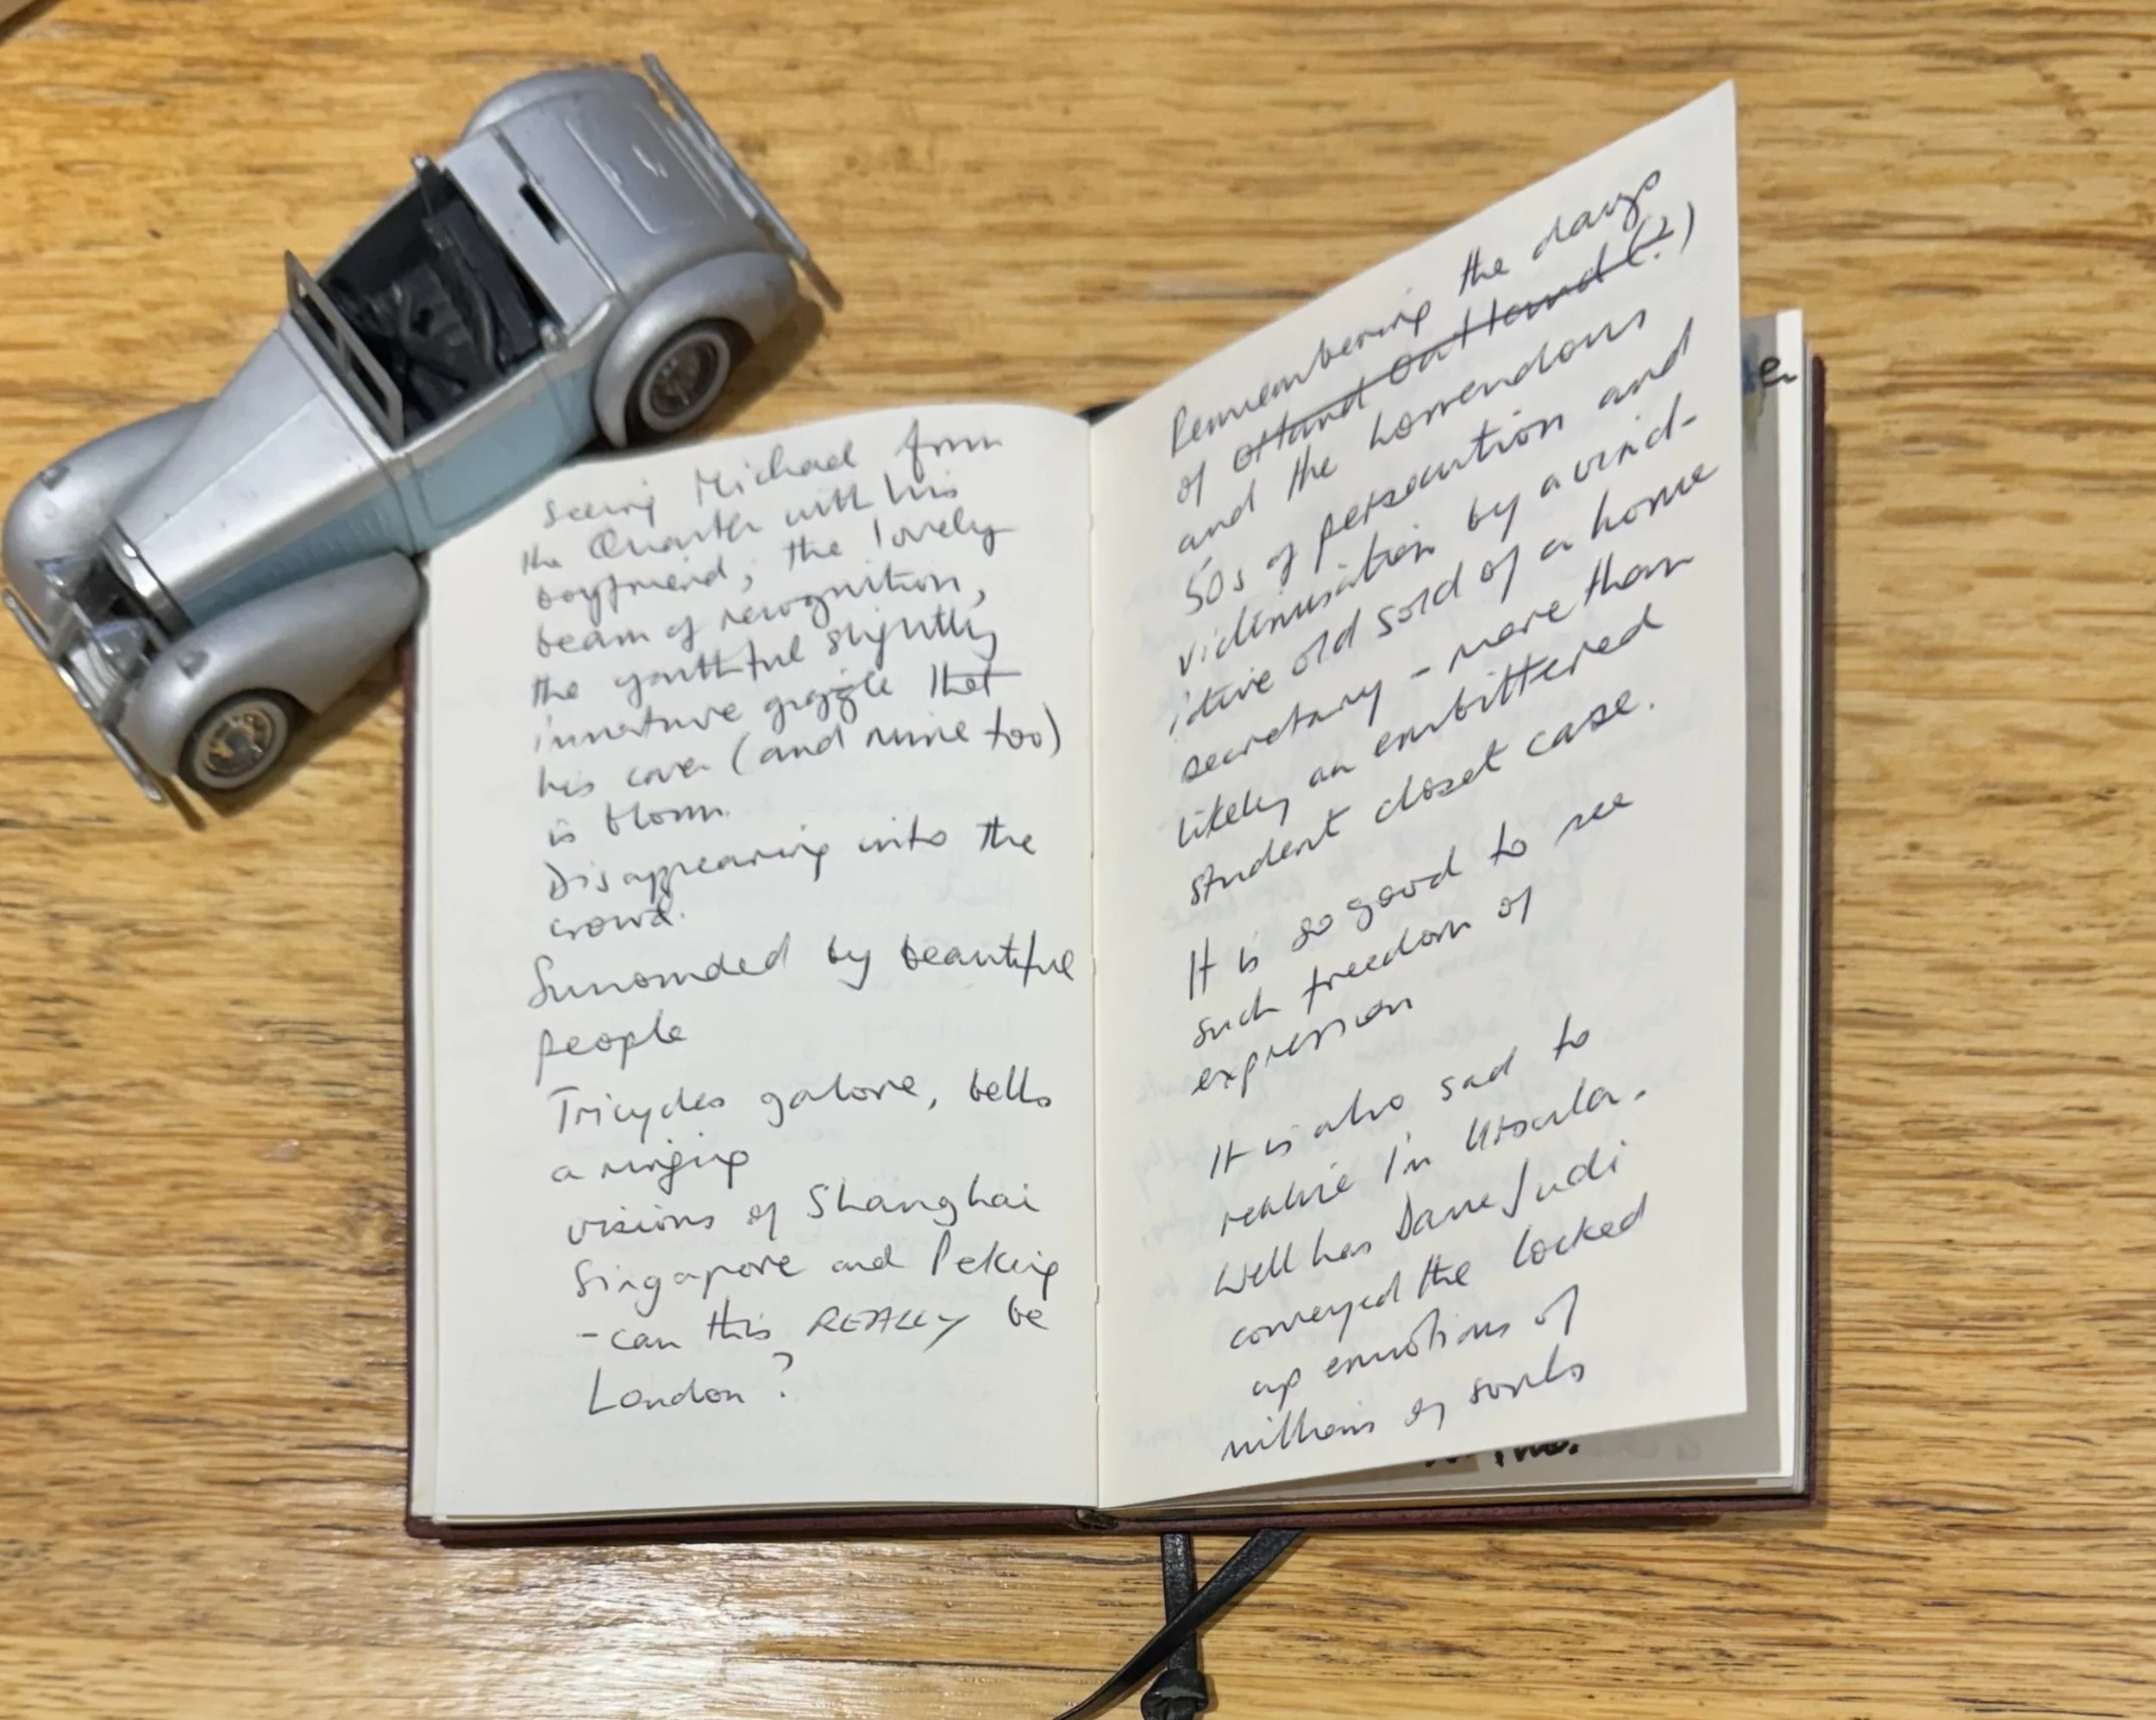 Seeing Michael from
the Quarter with his
boyfriend, the lovely
beam of recognition,
the youthful slightly
immature giggle that
his cover (and mine too)
is blown.
Disappearing into the
crowd.
Surrounded by beautiful
people
Tricycles galore, bells
a ringing
visions of Shanghai
Singapore and Peking
- can this REALLY be
London?
Remembering the days
of
and the horrendous
50s of persecution and
victimisation by a vind-
ictive old sold of a home
secretary - more than
likely an embittered
student closet case.
It is so good to see
such freedom of
expression
It is also sad to
realise I'm Ursula.
Well has Dame Judi
conveyed the locked
up emotions of
millions of souls